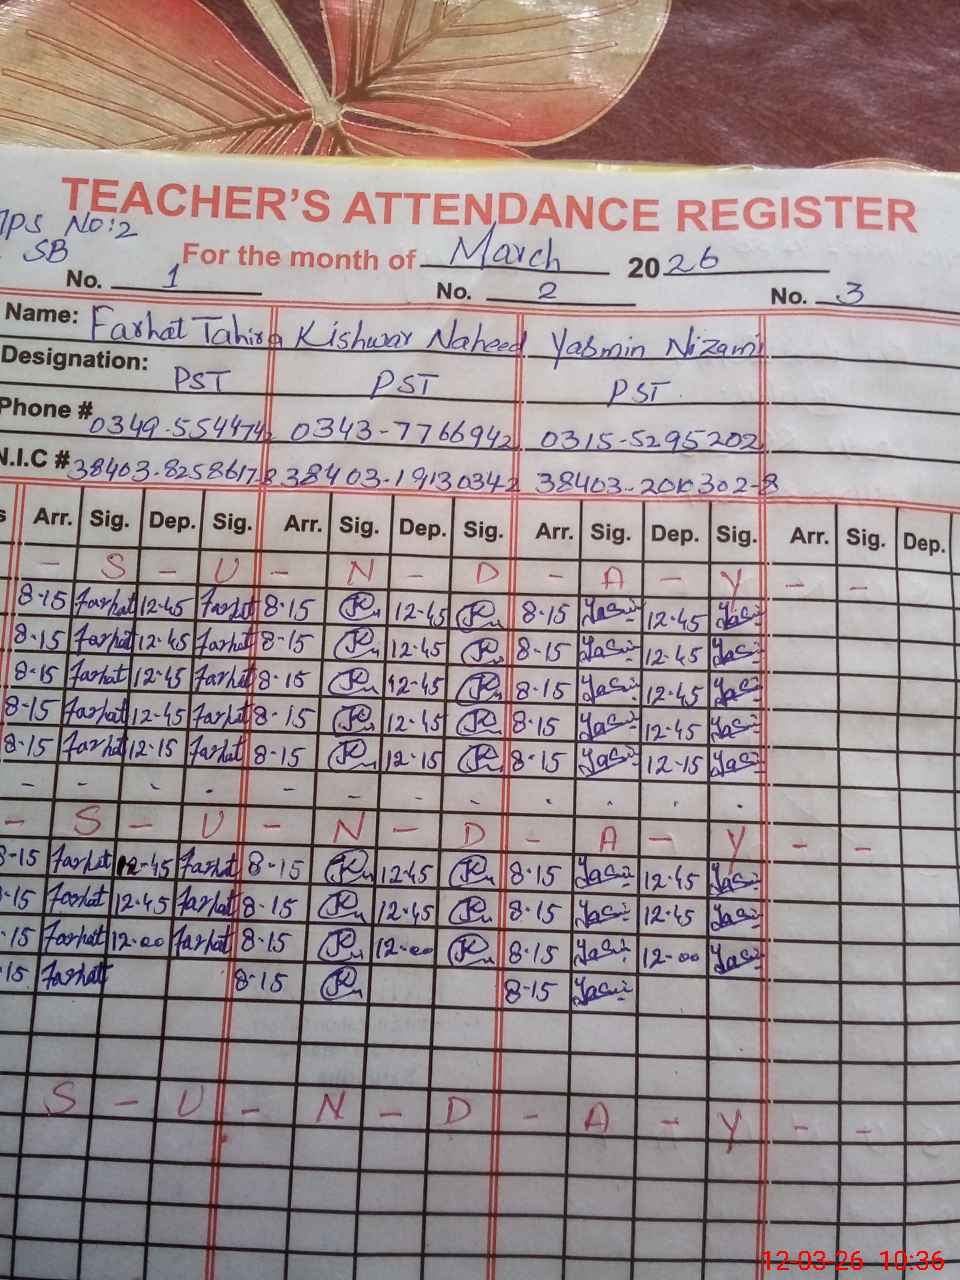 TEACHER'S ATTENDANCE REGISTER
MPS No:2
SB
For the month of March 2026
No. 1 No. 2 No. 3
Name: Farhat Tahira Kishwar Naheed Yasmin Nizami
Designation: PST PST PST
Phone # 0349-554474 0343-7766942 0315-5295202
N.I.C # 38403-8258617-8 38403-1913034-2 38403-2010302-8
s Arr. Sig. Dep. Sig. Arr. Sig. Dep. Sig. Arr. Sig. Dep. Sig. Arr. Sig. Dep.
- S - U - N - D - A - Y - -
8-15 Farhat 12-45 Farhat 8-15 12-45 8-15 Yasmin 12-45 Yasmin
8-15 Farhat 12-45 Farhat 8-15 12-45 8-15 Yasmin 12-45 Yasmin
8-15 Farhat 12-45 Farhat 8-15 12-45 8-15 Yasmin 12-45 Yasmin
8-15 Farhat 12-45 Farhat 8-15 12-45 8-15 Yasmin 12-45 Yasmin
8-15 Farhat 12-15 Farhat 8-15 12-15 8-15 Yasmin 12-15 Yasmin
- - - - - - - - - - - -
- S - U - N - D - A - Y - -
8-15 Farhat 12-45 Farhat 8-15 12-45 8-15 Yasmin 12-45 Yasmin
-15 Farhat 12-45 Farhat 8-15 12-45 8-15 Yasmin 12-45 Yasmin
-15 Farhat 12-00 Farhat 8-15 12-00 8-15 Yasmin 12-00 Yasmin
-15 Farhat 8-15 8-15 Yasmin
S - U - N - D - A - Y - -
12-03-26 10:36